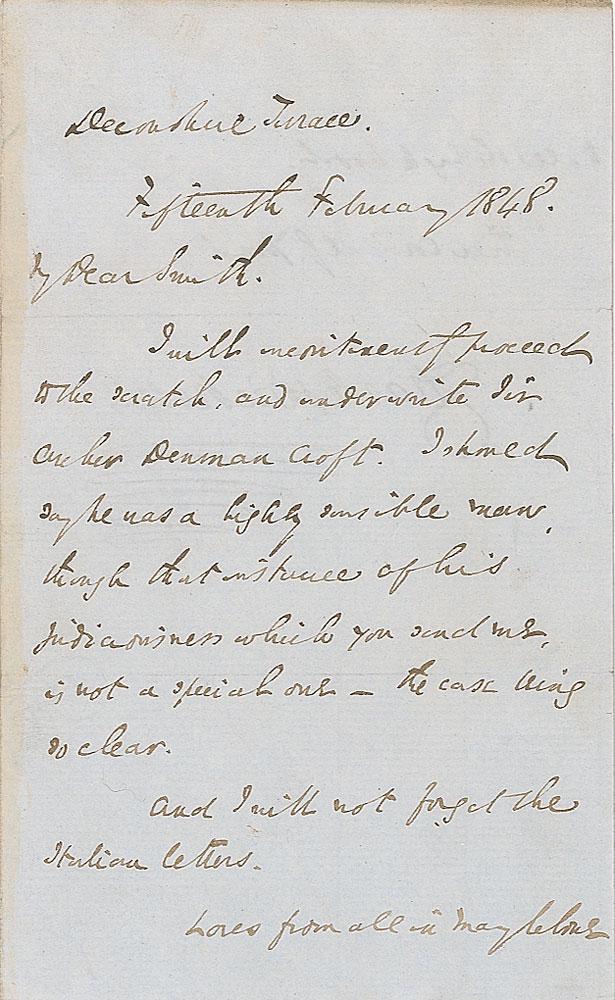 Devonshire Terrace.
Fifteenth February 1848.
My Dear Smith.
I will incontinently proceed
to the scratch, and underwrite Sir
Archer Denman Croft. I should
say he was a highly sensible man,
though that instance of his
judiciousness which you send me,
is not a special one – the case being
so clear.
And I will not forget the
Italian letters.
Loves from all in Marylebone